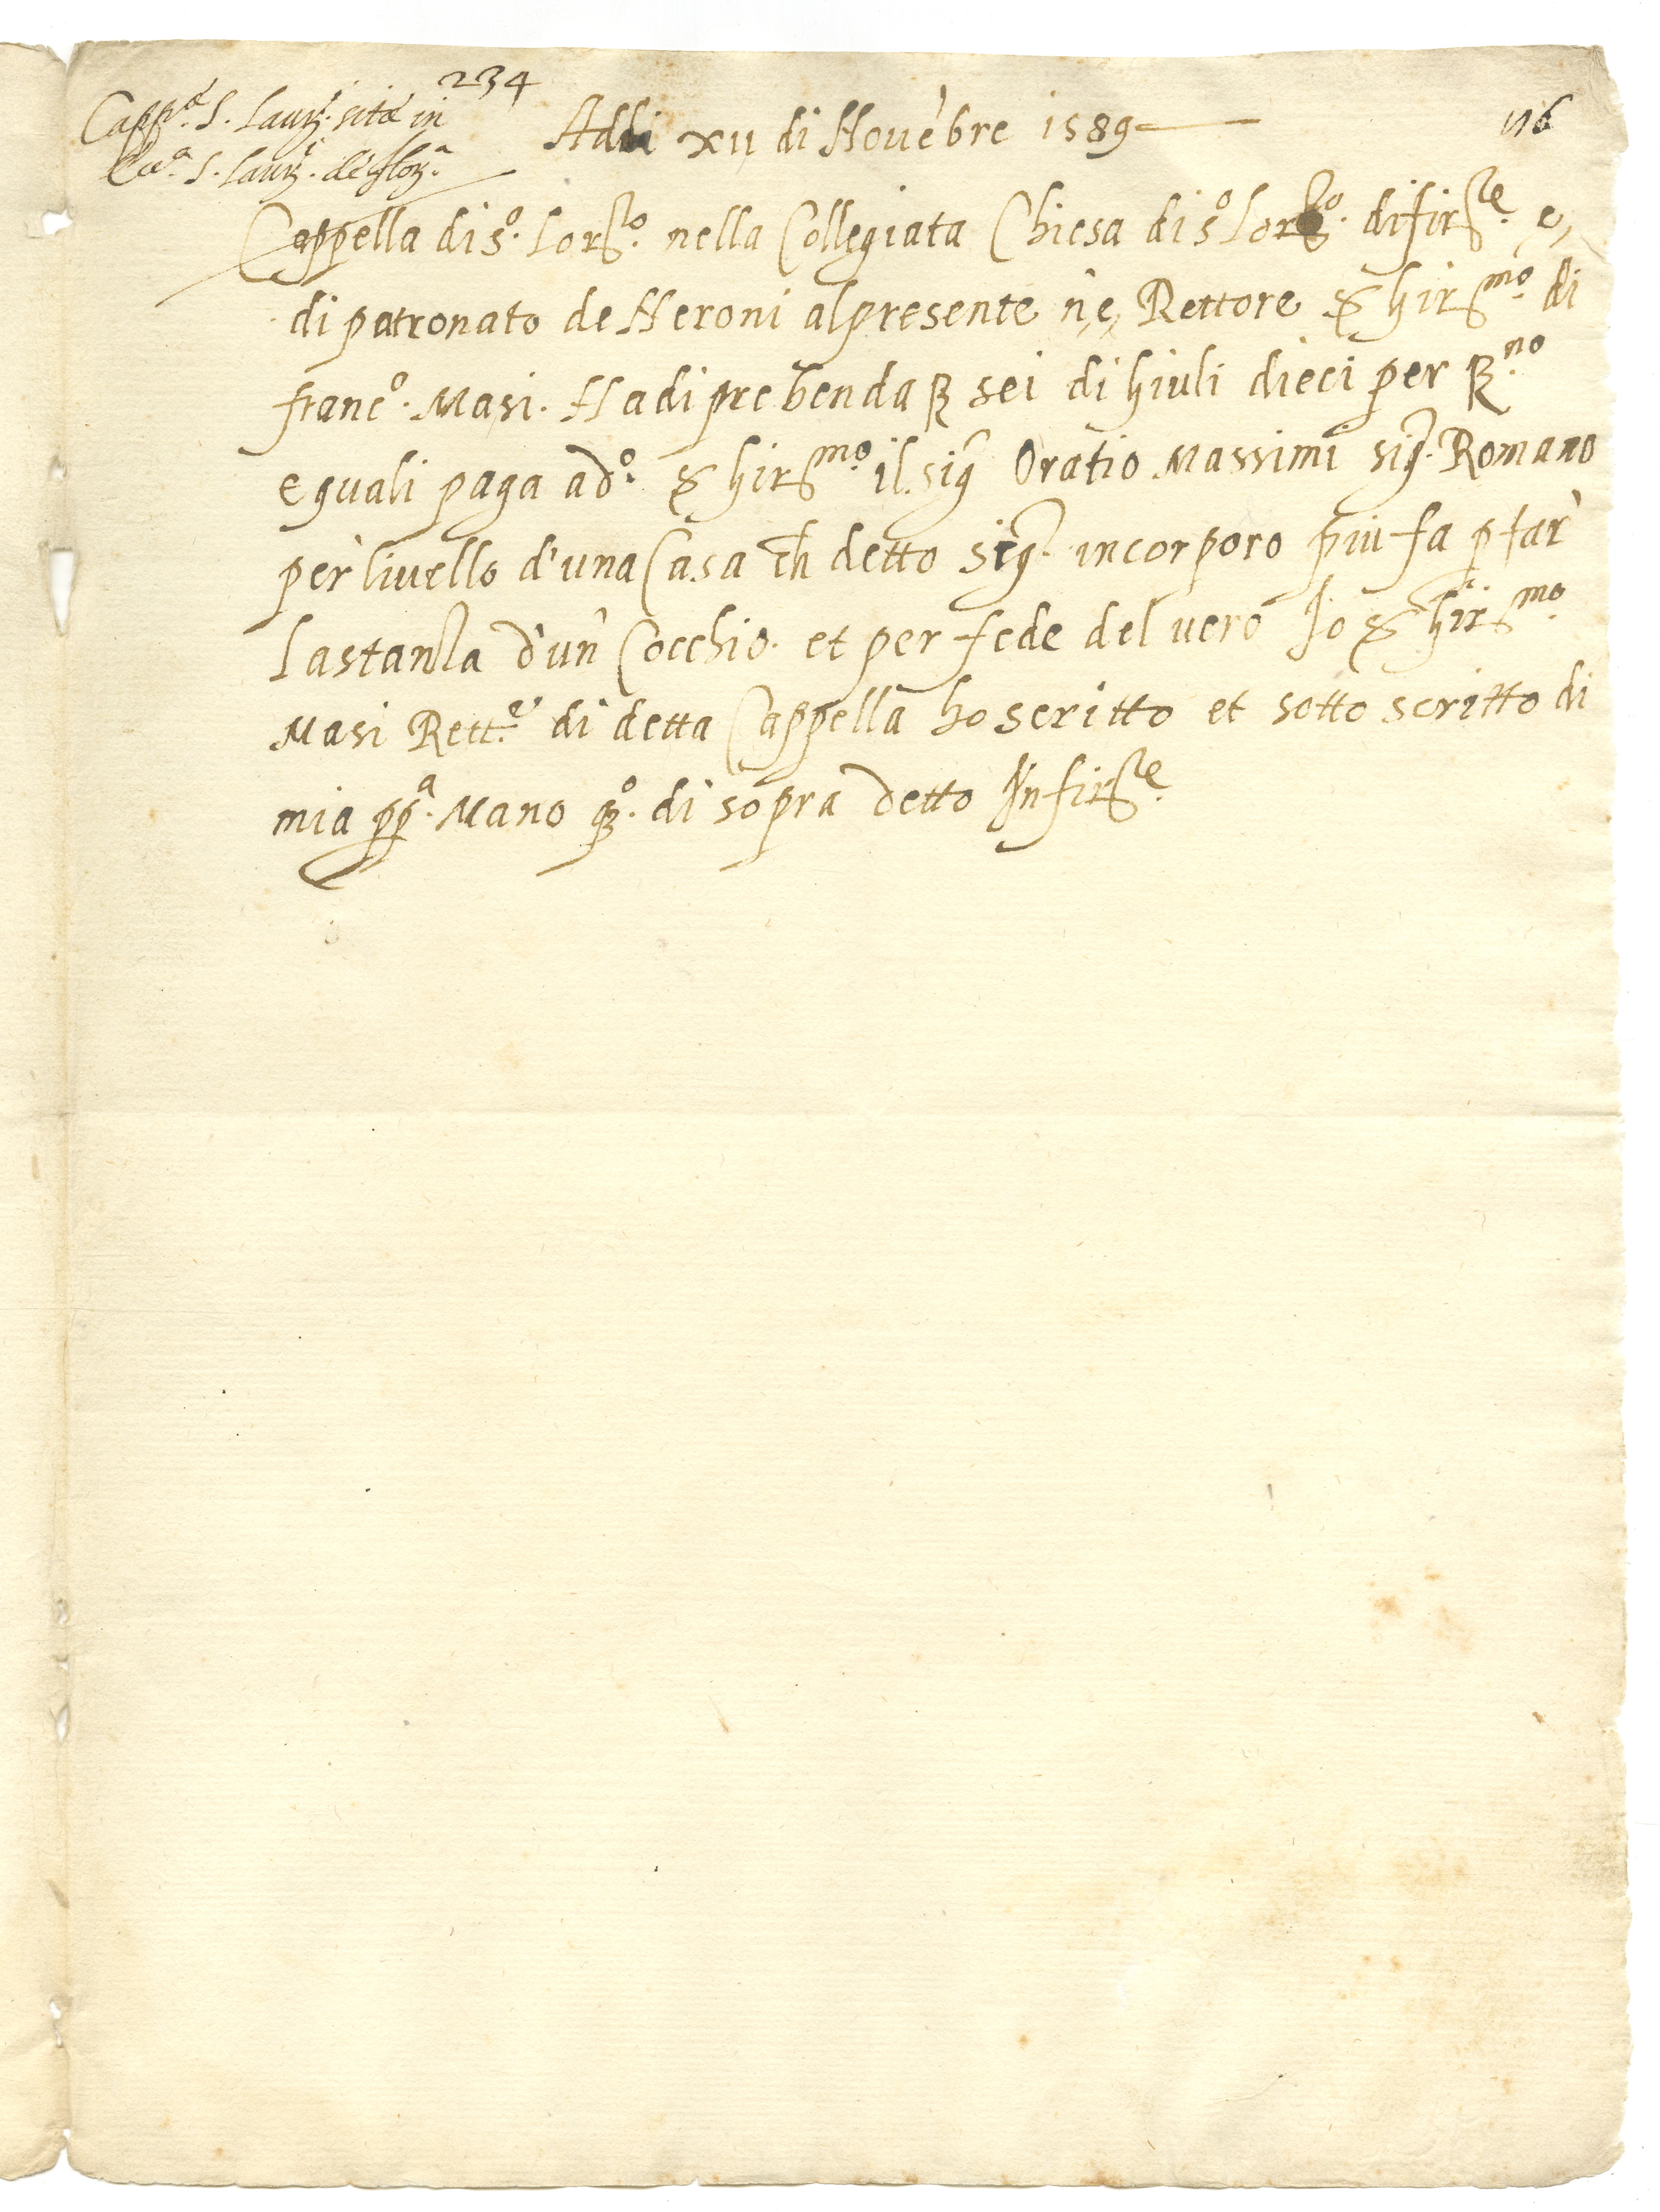 234
Capp.ᵃ S. Laurᵗⁱ sita in
Ecc.ᵃ S. Laurᵗⁱ. de flor.ᵃ
Addi xii di Novẽbre 1589
Cappella di s.º Lorẓo. nella Collegiata Chiesa di s.º Lorẓo. di firẓe. e,
di patronato de Neroni al presente n'e, Rettore hirᵐᵒ. di
francº. Masi. Ha di prebenda sei di hiuli dieci per
e quali paga a dº. hirᵐᵒ. il sig Oratio Massimi sig. Romano
per livello d'una Casa ch detto sig. incorporo piu fa p far
la stanza d'un Cocchio. et per fede del vero Io hirᵐᵒ.
Masi Rett.ᵉ di detta Cappella ho scritto et sotto scritto di
mia pp.ᵃ Mano qº. di sopra detto In firẓe.